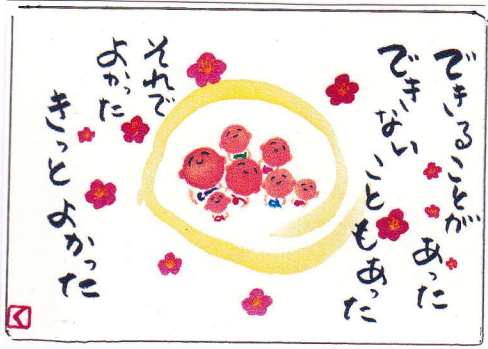 できることが
あった
できない
こともあった
それで
よかった
きっとよかった
く